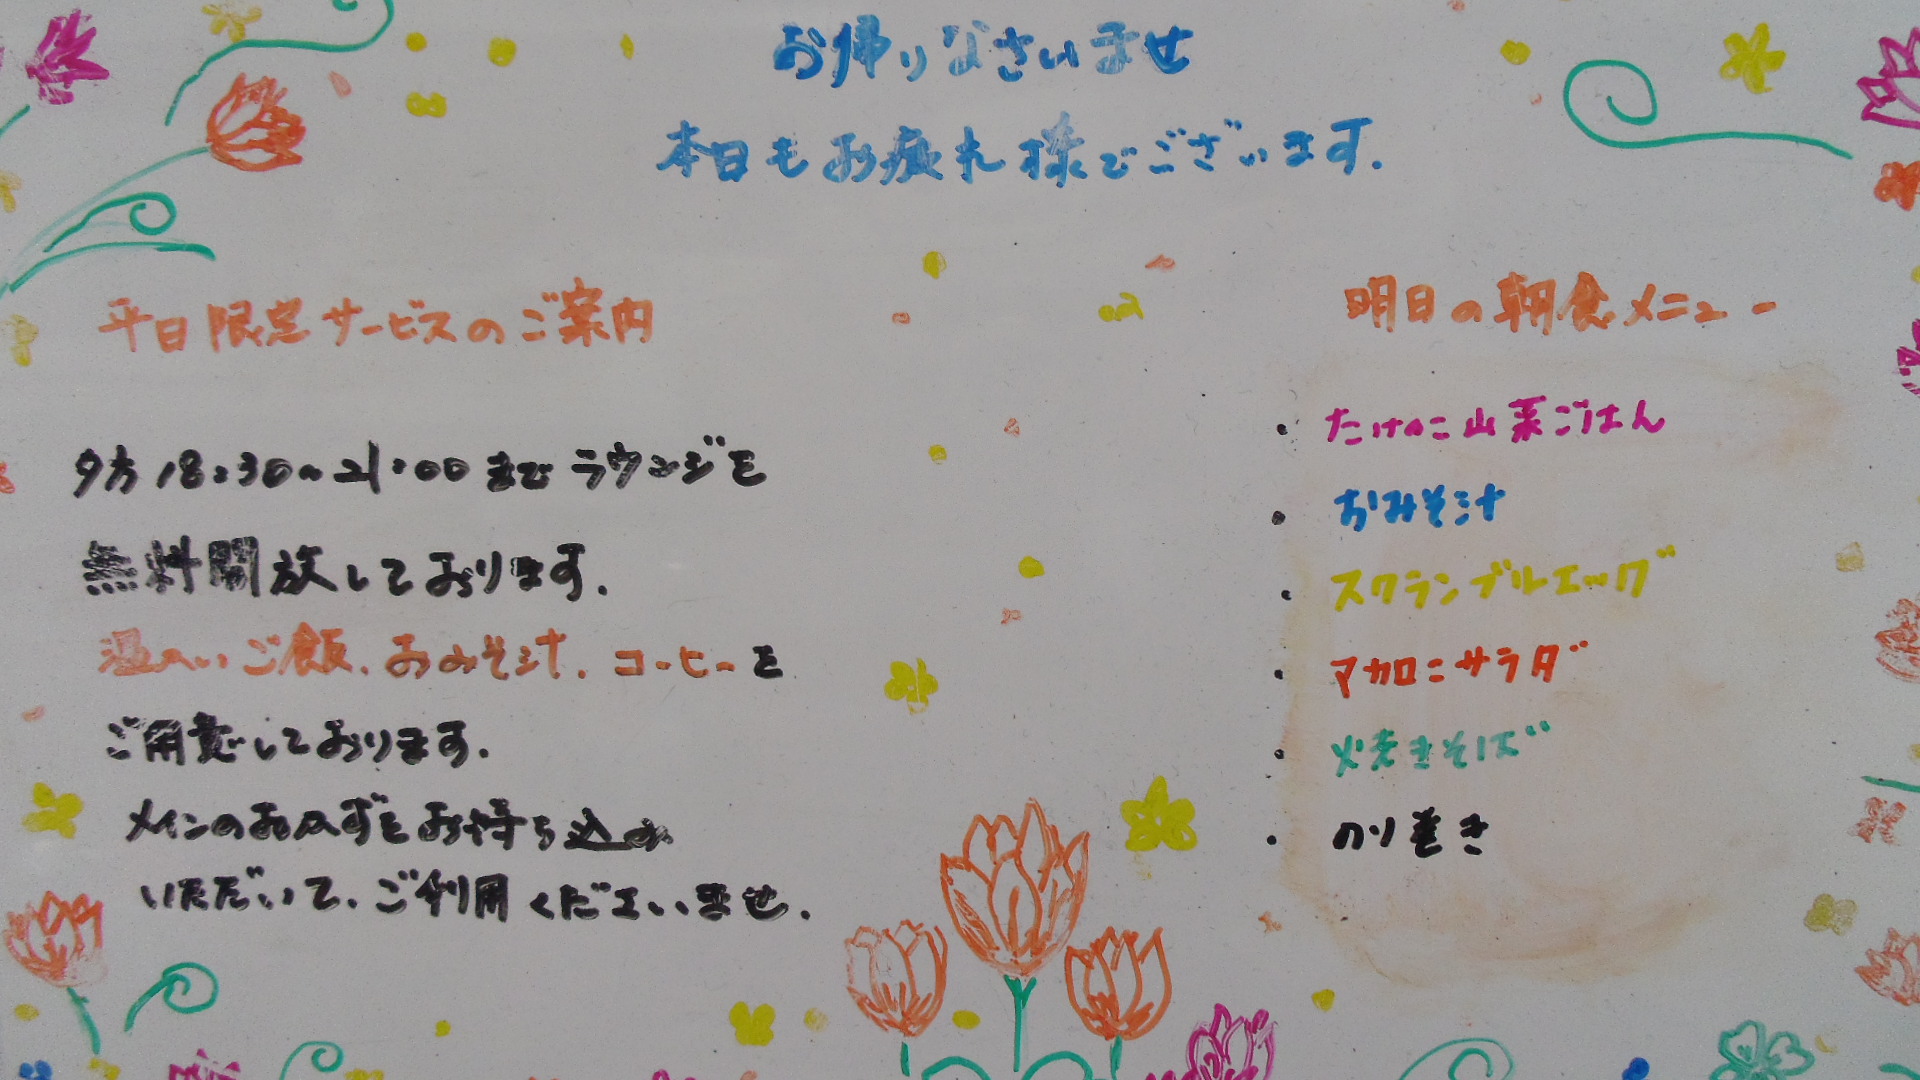 お帰りなさいませ
本日もお疲れ様でございます.
平日限定サービスのご案内
夕方18:30〜21:00までラウンジを
無料開放しております.
温かいご飯.おみそ汁.コーヒーを
ご用意しております.
メインのおかずをお持ち込み
いただいて.ご利用くださいませ.
明日の朝食メニュー
・たけのこ山菜ごはん
・おみそ汁
・スクランブルエッグ
・マカロニサラダ
・焼きそば
・のり巻き